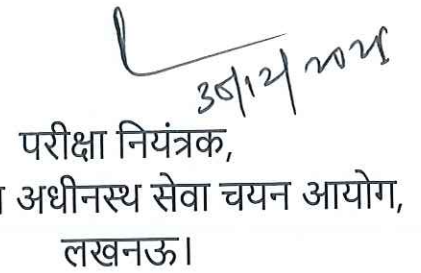 30/12/2025
परीक्षा नियंत्रक,
अधीनस्थ सेवा चयन आयोग,
लखनऊ।